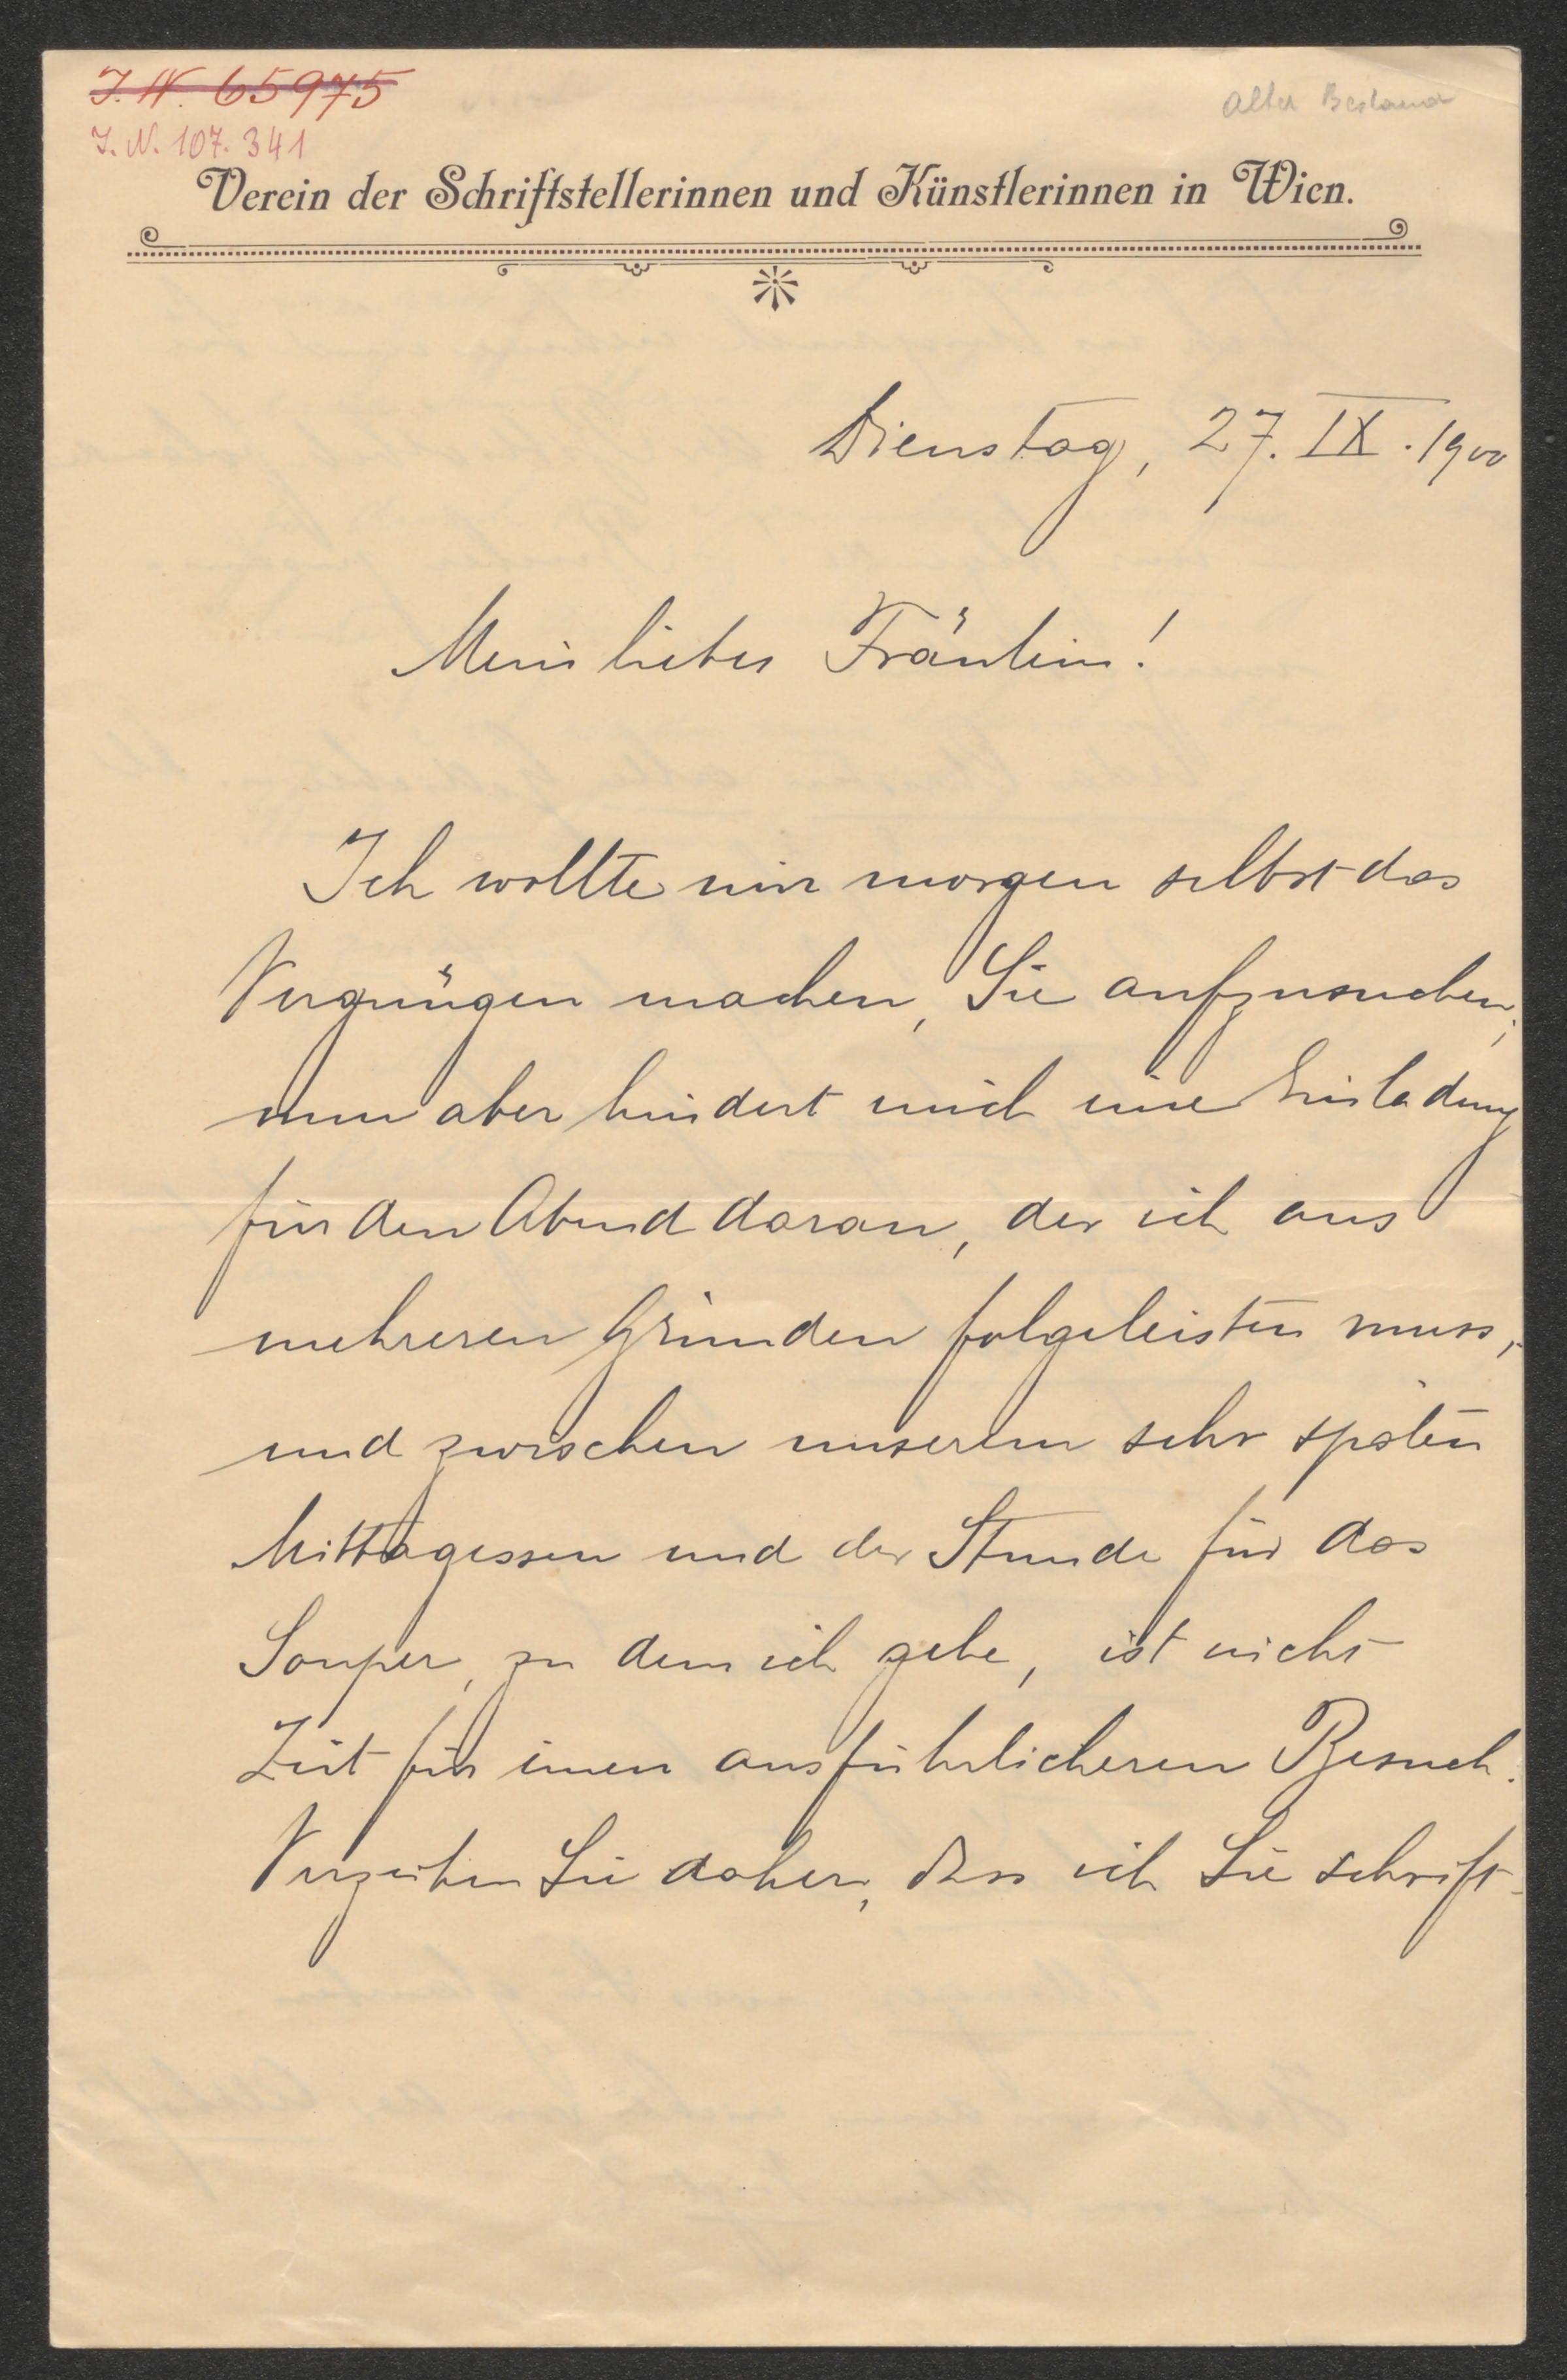 J. N. 65975
Alter Bestand
J. N. 107.341
Verein der Schriftstellerinnen und Künstlerinnen in Wien.
Dienstag, 27. IX. 1900
Mein liebes Fräulein!
Ich wollte mir morgen selbst das
Vergnügen machen, Sie aufzusuchen;
nun aber hindert mich eine Einladung
für den Abend daran, der ich aus
mehreren Gründen folgeleisten muss,
und zwischen unserem sehr späten
Mittagessen und der Stunde für das
Souper, zu dem ich gehe, ist nicht
Zeit für einen ausführlicheren Besuch.
Verzeihen Sie daher, dass ich Sie schrift-